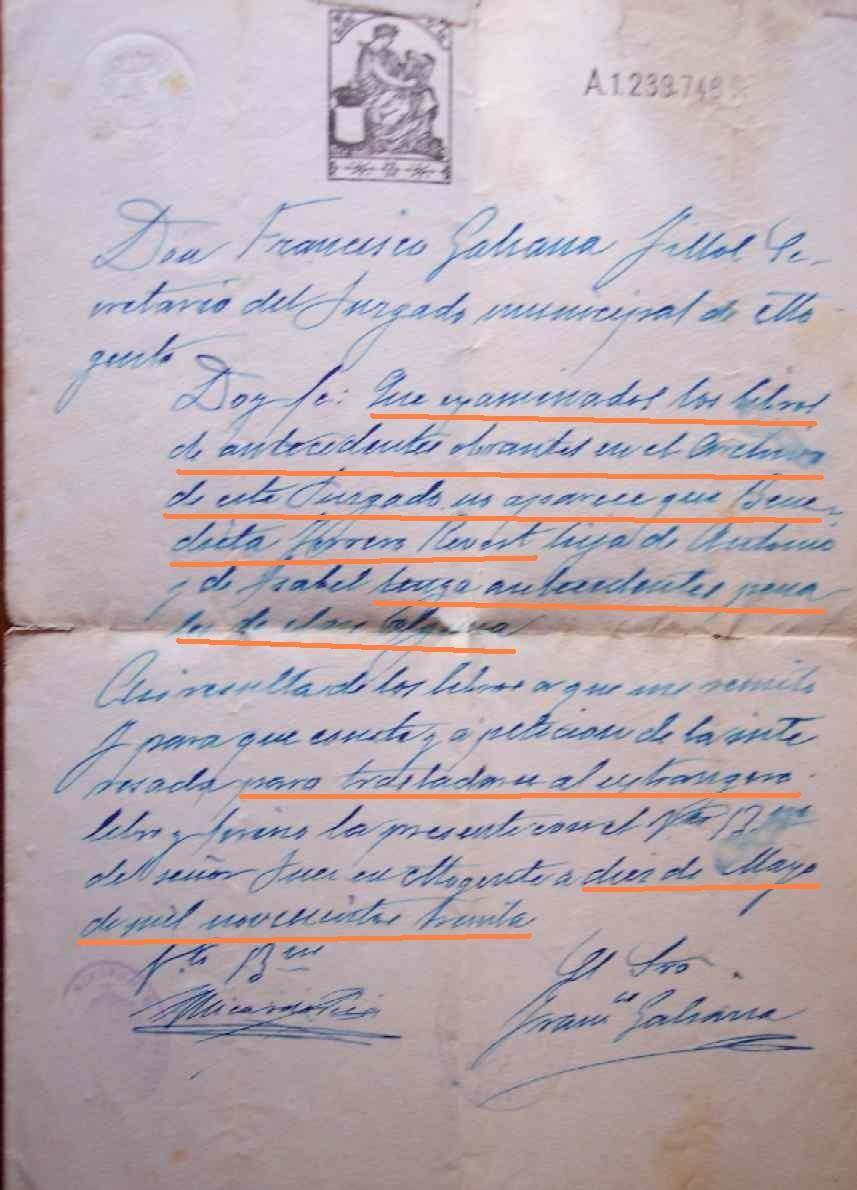 A1.239.748
Don Francisco Galiana Fillol Se-
cretario del Juzgado municipal de Mo-
gente
Doy fe: Que examinados los libros
de antecedentes obrantes en el archivo
de este Juzgado no aparece que Bene-
dicta Herrero Revert hija de Antonio
y de Isabel tenga antecedentes pena
les de clase alguna
Asi resulta de los libros a que me remito
y para que conste y a peticion de la inte
resada para trasladarse al extrangero
libro y firmo la presente con el Vto Bno
del señor Juez en Mogente a diez de Mayo
de mil novecientos treinta
Vto Bno
El Sro
Franco Galiana